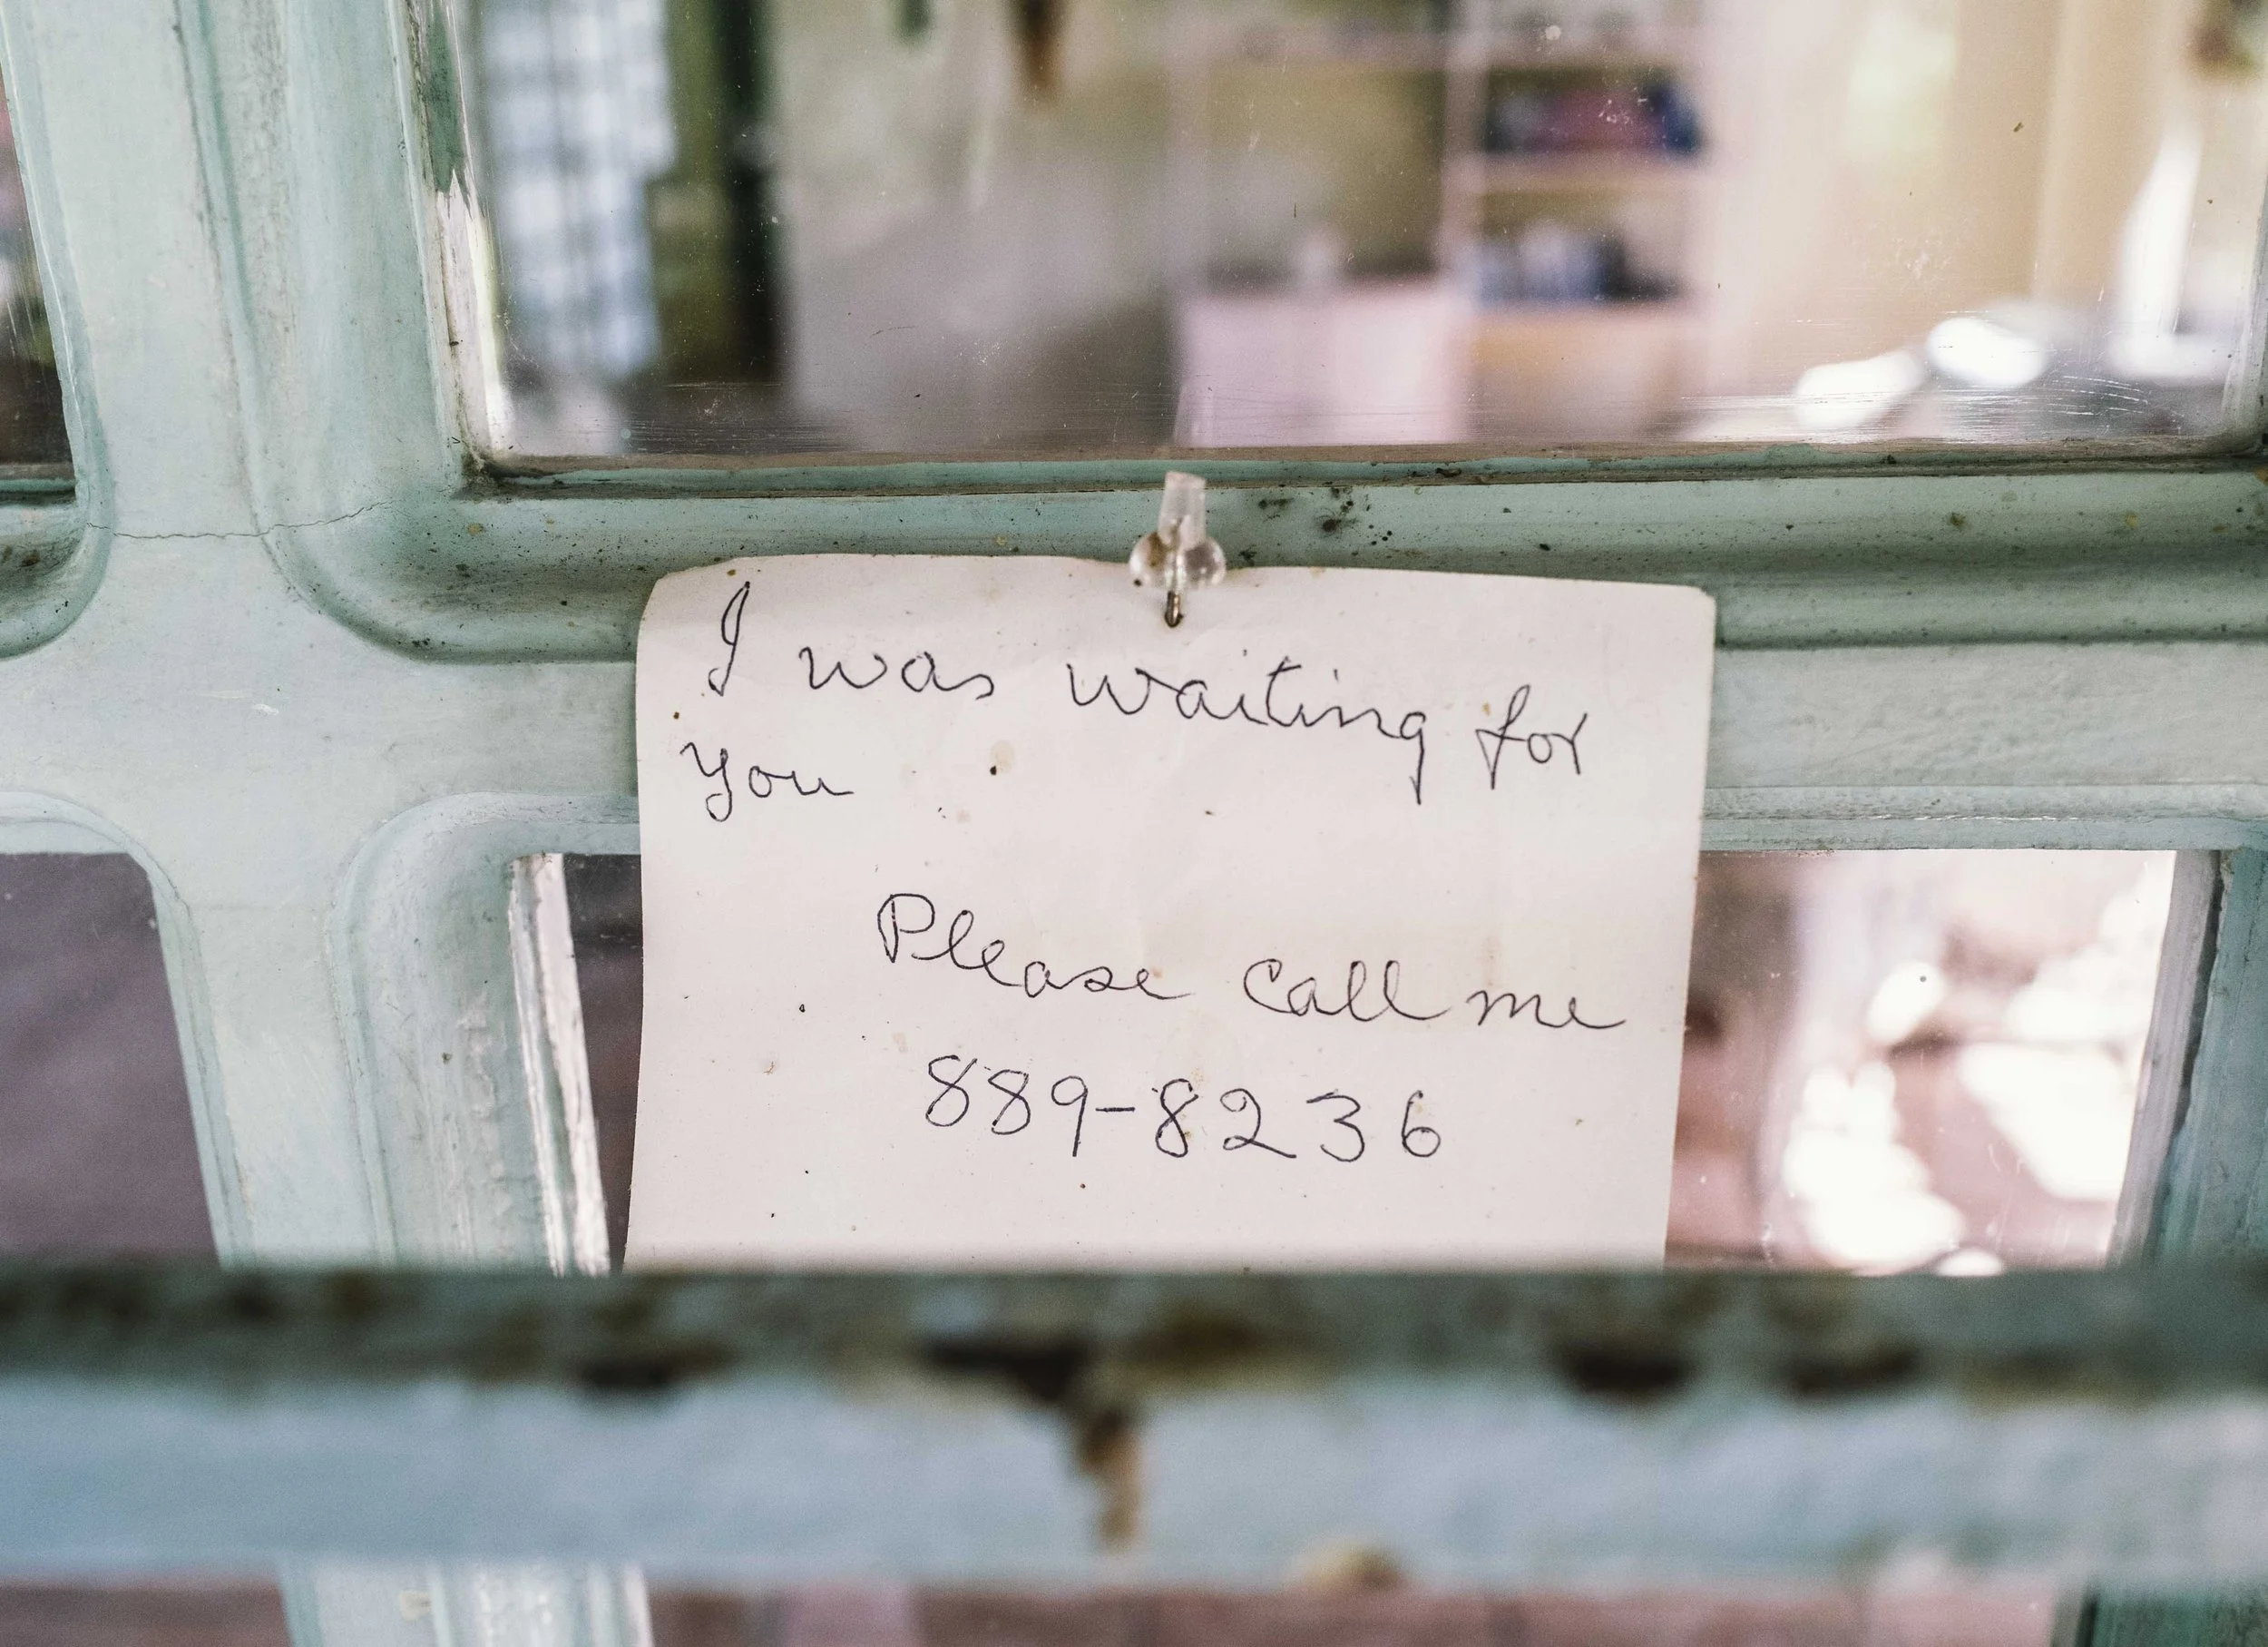 I was waiting for
you
Please call me
889-8236